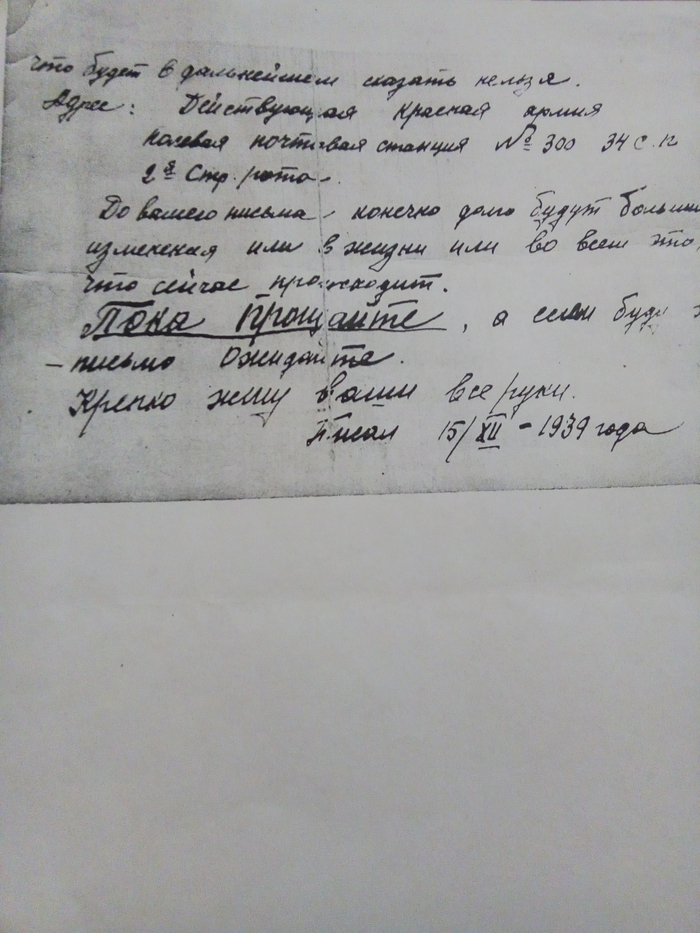 что будет в дальнейшем сказать нельзя.
Адрес: Действующая Красная армия
полевая почтовая станция № 300 34 с.п
2я Стр. рота.
До вашего письма конечно долго будут больши
изменения или в жизни или во всем это,
что сейчас происходит.
Пока Прощайте, а если буду
– письмо Ожидайте.
Крепко жму ваши все руки.
Писал 15/XII - 1939 года